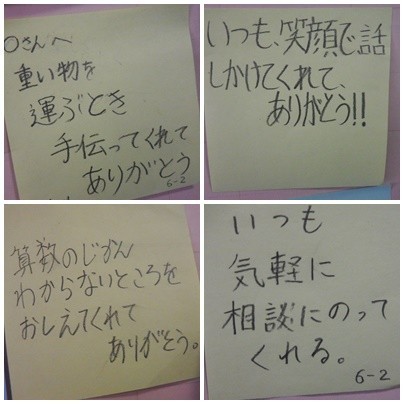 ○さんへ
重い物を
運ぶとき
手伝ってくれて
ありがとう
6-2
いつも、笑顔で話
しかけてくれて、
ありがとう!!
算数のじかん
わからないところを
おしえてくれて
ありがとう。
いつも
気軽に
相談にのって
くれる。
6-2